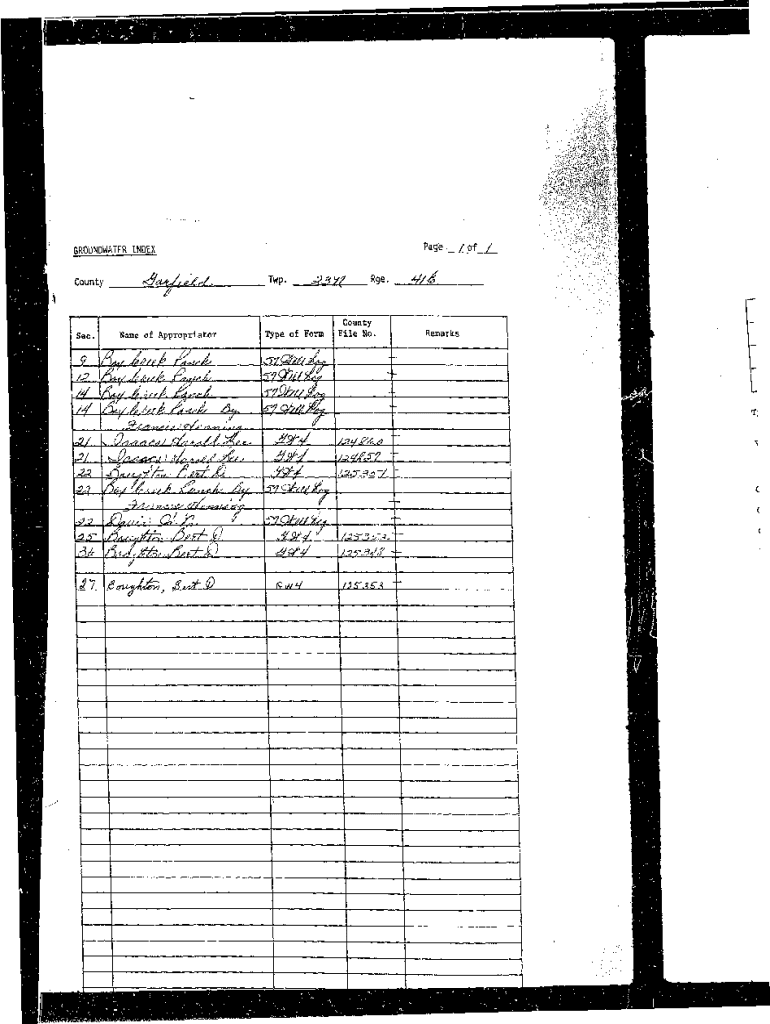 GROUNDWATER INDEX Page 1 of 1
County Garfield Twp. 23N Rge. 41E
Sec. Name of Appropriator Type of Form County File No. Remarks
9 Box Creek Ranch 57 Well Log
12 Box Creek Ranch 57 Well Log
14 Box Creek Ranch 57 Well Log
14 Box Creek Ranch By 57 Well Log
Francis Henning
21 Isaacs Harold Lee GW4 124860
21 Isaacs Harold Lee 124857
22 Boughton Bert D 125351
22 Box Creek Ranch By 57 Well Log
Francis Henning
22 Davis 57 Well Log
25 Boughton Bert D GW4 125352
34 Boughton Bert D GW4 125348
27 Boughton, Bert D GW4 125353